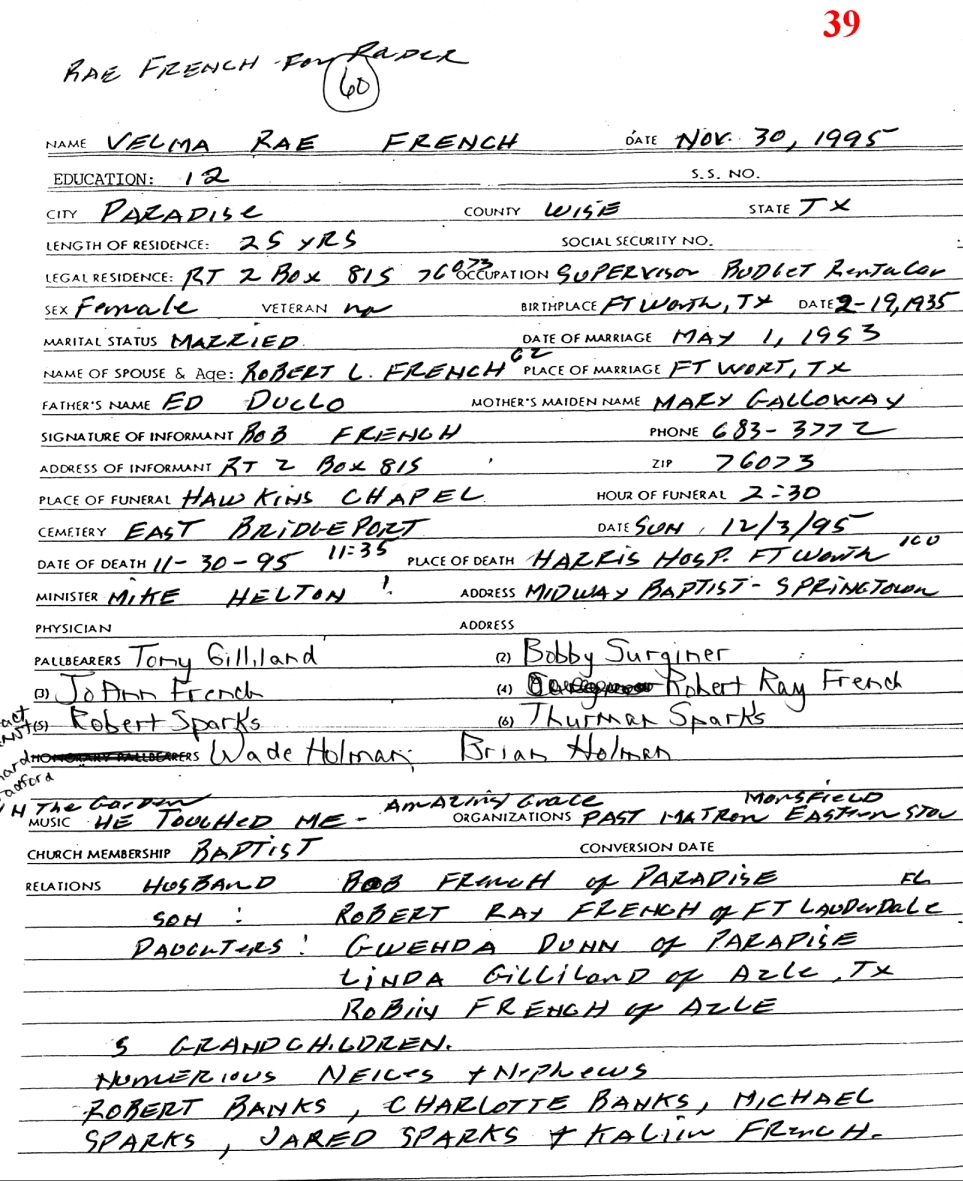 39
RAE FRENCH For Rader
60
NAME VELMA RAE FRENCH DATE NOV. 30, 1995
EDUCATION: 12 S.S. NO.
CITY PARADISE COUNTY WISE STATE TX
LENGTH OF RESIDENCE: 25 YRS SOCIAL SECURITY NO.
LEGAL RESIDENCE: RT 2 Box 815 76073 OCCUPATION SUPERVISOR BUDGET RentaCar
SEX Female VETERAN no BIRTHPLACE FT Worth, TX DATE 2-19,1935
MARITAL STATUS MARRIED DATE OF MARRIAGE MAY 1, 1953
NAME OF SPOUSE & Age: ROBERT L. FRENCH 62 PLACE OF MARRIAGE FT WORT, TX
FATHER'S NAME ED DULLO MOTHER'S MAIDEN NAME MARY GALLOWAY
SIGNATURE OF INFORMANT BOB FRENCH PHONE 683-3772
ADDRESS OF INFORMANT RT 2 Box 815 ZIP 76073
PLACE OF FUNERAL HAWKINS CHAPEL HOUR OF FUNERAL 2:30
CEMETERY EAST BRIDGEPORT DATE SUN, 12/3/95
DATE OF DEATH 11-30-95 11:35 PLACE OF DEATH HARRIS HOSP. FT Worth ICU
MINISTER MIKE HELTON ADDRESS MIDWAY BAPTIST - SPRINGTOWN
PHYSICIAN ADDRESS
PALLBEARERS Tony Gilliland (2) Bobby Surginer
(3) JoAnn French (4) Robert Ray French
(5) Robert Sparks (6) Thurman Sparks
HONORARY PALLBEARERS Wade Holman Brian Holman
The Garden Amazing Grace Mansfield
MUSIC HE TOUCHED ME - ORGANIZATIONS PAST MATRON EASTERN STAR
CHURCH MEMBERSHIP BAPTIST CONVERSION DATE
RELATIONS HUSBAND BOB FRENCH of PARADISE
SON: ROBERT RAY FRENCH of FT LAUDERDALE FL
DAUGHTERS: GWENDA DUNN of PARADISE
LINDA GILLILAND of Azle, TX
ROBIN FRENCH of AZLE
5 GRANDCHILDREN.
NUMERIOUS NEICES + NEPHEWS
ROBERT BANKS, CHARLOTTE BANKS, MICHAEL
SPARKS, JARED SPARKS + FRENCH.